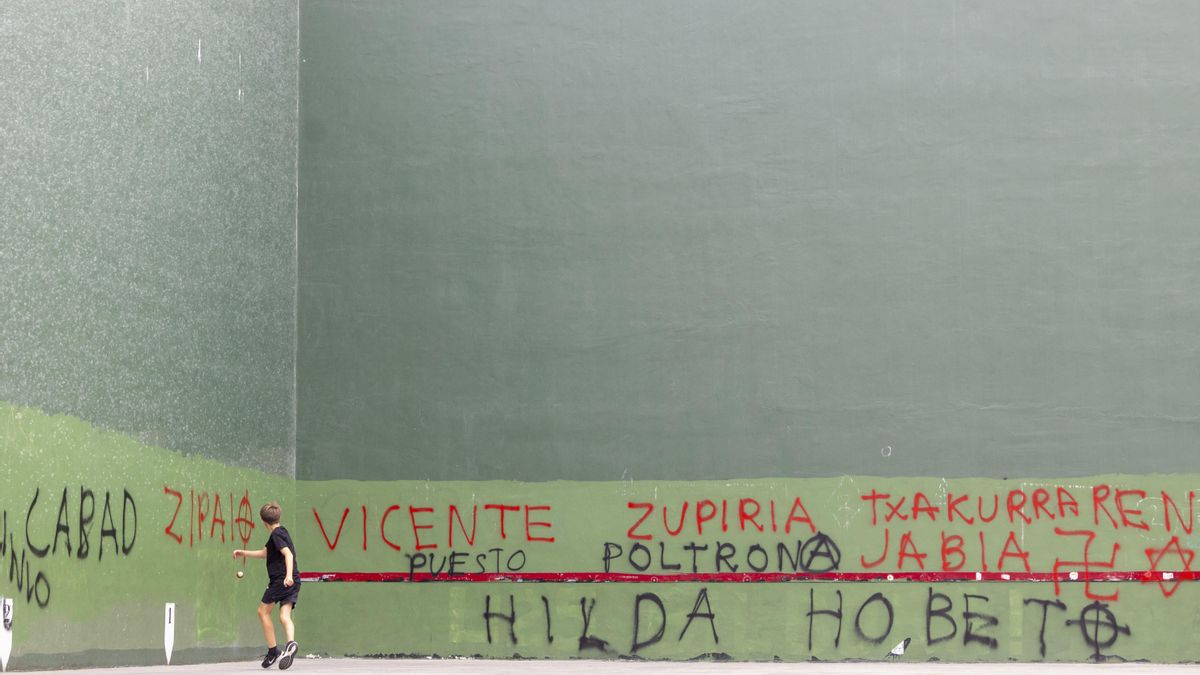 CABAD
ZIPAIO
VICENTE
PUESTO
ZUPIRIA
POLTRONA
TXAKURRAREN
JABIA
HILDA HOBETO